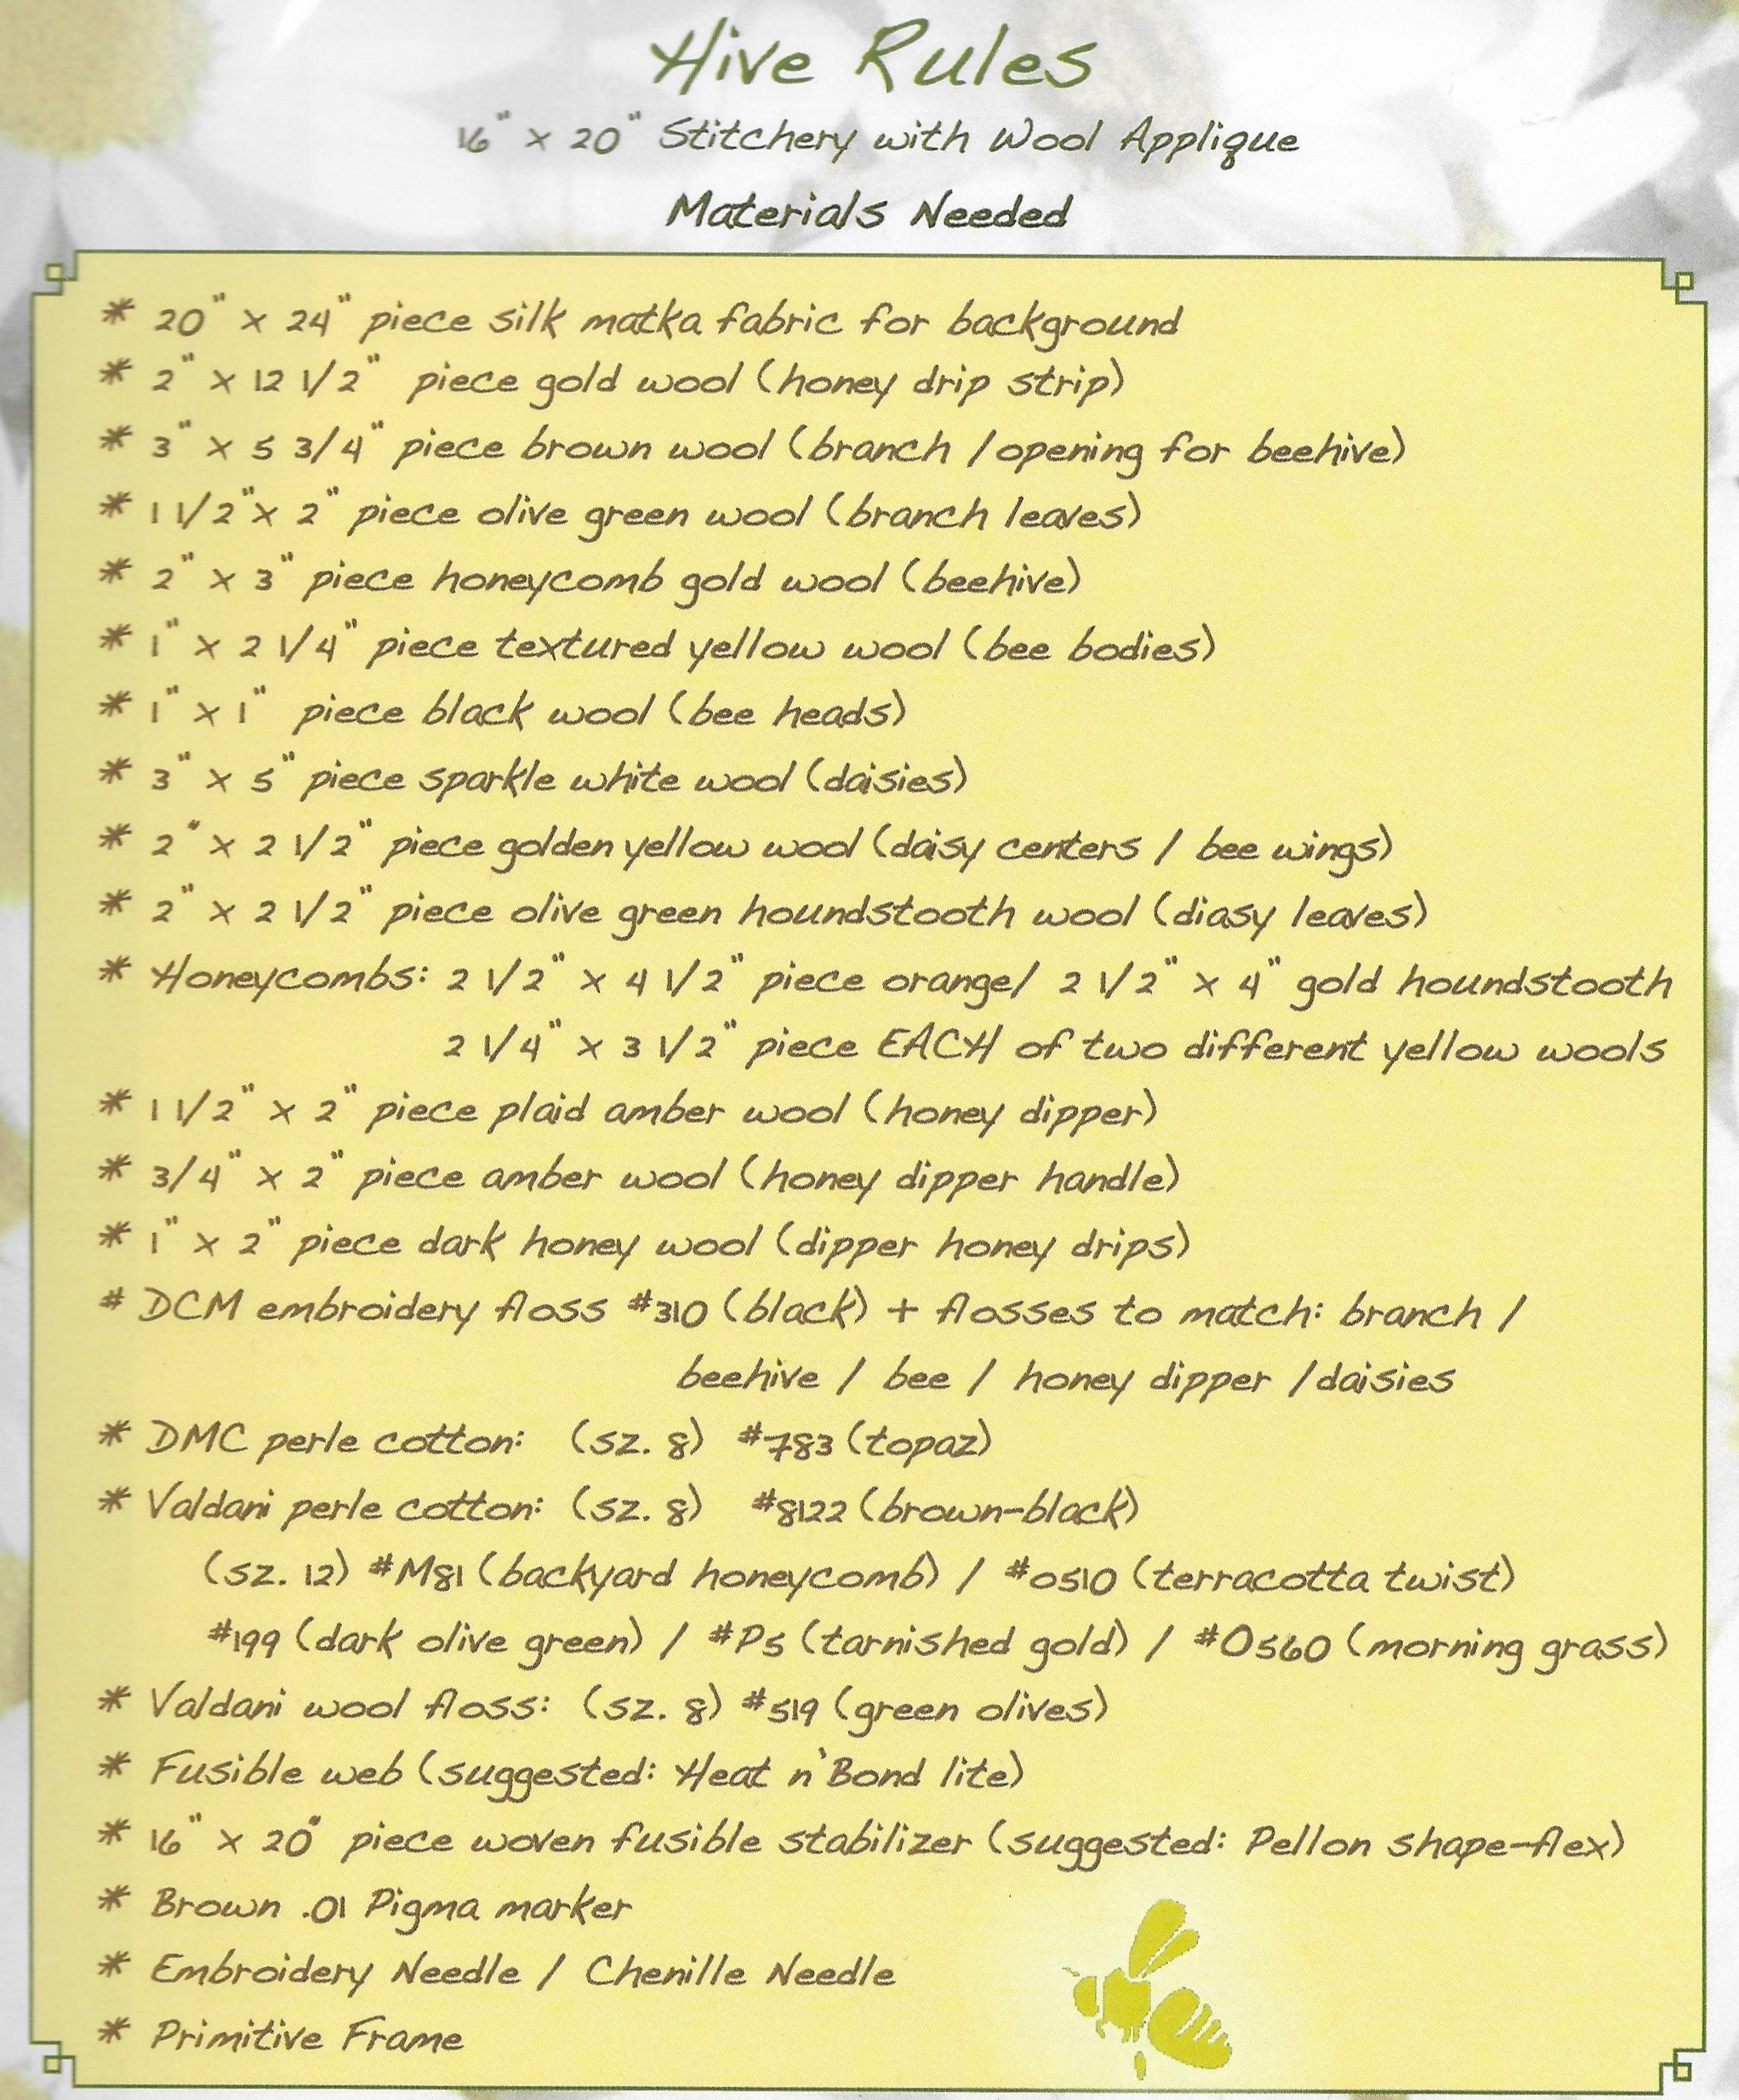 Hive Rules
16" x 20" Stitchery with Wool Applique
Materials Needed
* 20" x 24" piece silk matka fabric for background
* 2" x 12 1/2" piece gold wool (honey drip strip)
* 3" x 5 3/4" piece brown wool (branch / opening for beehive)
* 1 1/2" x 2" piece olive green wool (branch leaves)
* 2" x 3" piece honeycomb gold wool (beehive)
* 1" x 2 1/4" piece textured yellow wool (bee bodies)
* 1" x 1" piece black wool (bee heads)
* 3" x 5" piece sparkle white wool (daisies)
* 2" x 2 1/2" piece golden yellow wool (daisy centers / bee wings)
* 2" x 2 1/2" piece olive green houndstooth wool (diasy leaves)
* Honeycombs: 2 1/2" x 4 1/2" piece orange/ 2 1/2" x 4" gold houndstooth
2 1/4" x 3 1/2" piece EACH of two different yellow wools
* 1 1/2" x 2" piece plaid amber wool (honey dipper)
* 3/4" x 2" piece amber wool (honey dipper handle)
* 1" x 2" piece dark honey wool (dipper honey drips)
# DCM embroidery floss #310 (black) + flosses to match: branch /
beehive / bee / honey dipper /daisies
* DMC perle cotton: (sz. 8) #783 (topaz)
* Valdani perle cotton: (sz. 8) #8122 (brown-black)
(sz. 12) #M81 (backyard honeycomb) / #o510 (terracotta twist)
#199 (dark olive green) / #P5 (tarnished gold) / #O560 (morning grass)
* Valdani wool floss: (sz. 8) #519 (green olives)
* Fusible web (suggested: Heat n'Bond lite)
* 16" x 20" piece woven fusible stabilizer (suggested: Pellon shape-flex)
* Brown .01 Pigma marker
* Embroidery Needle / Chenille Needle
* Primitive Frame